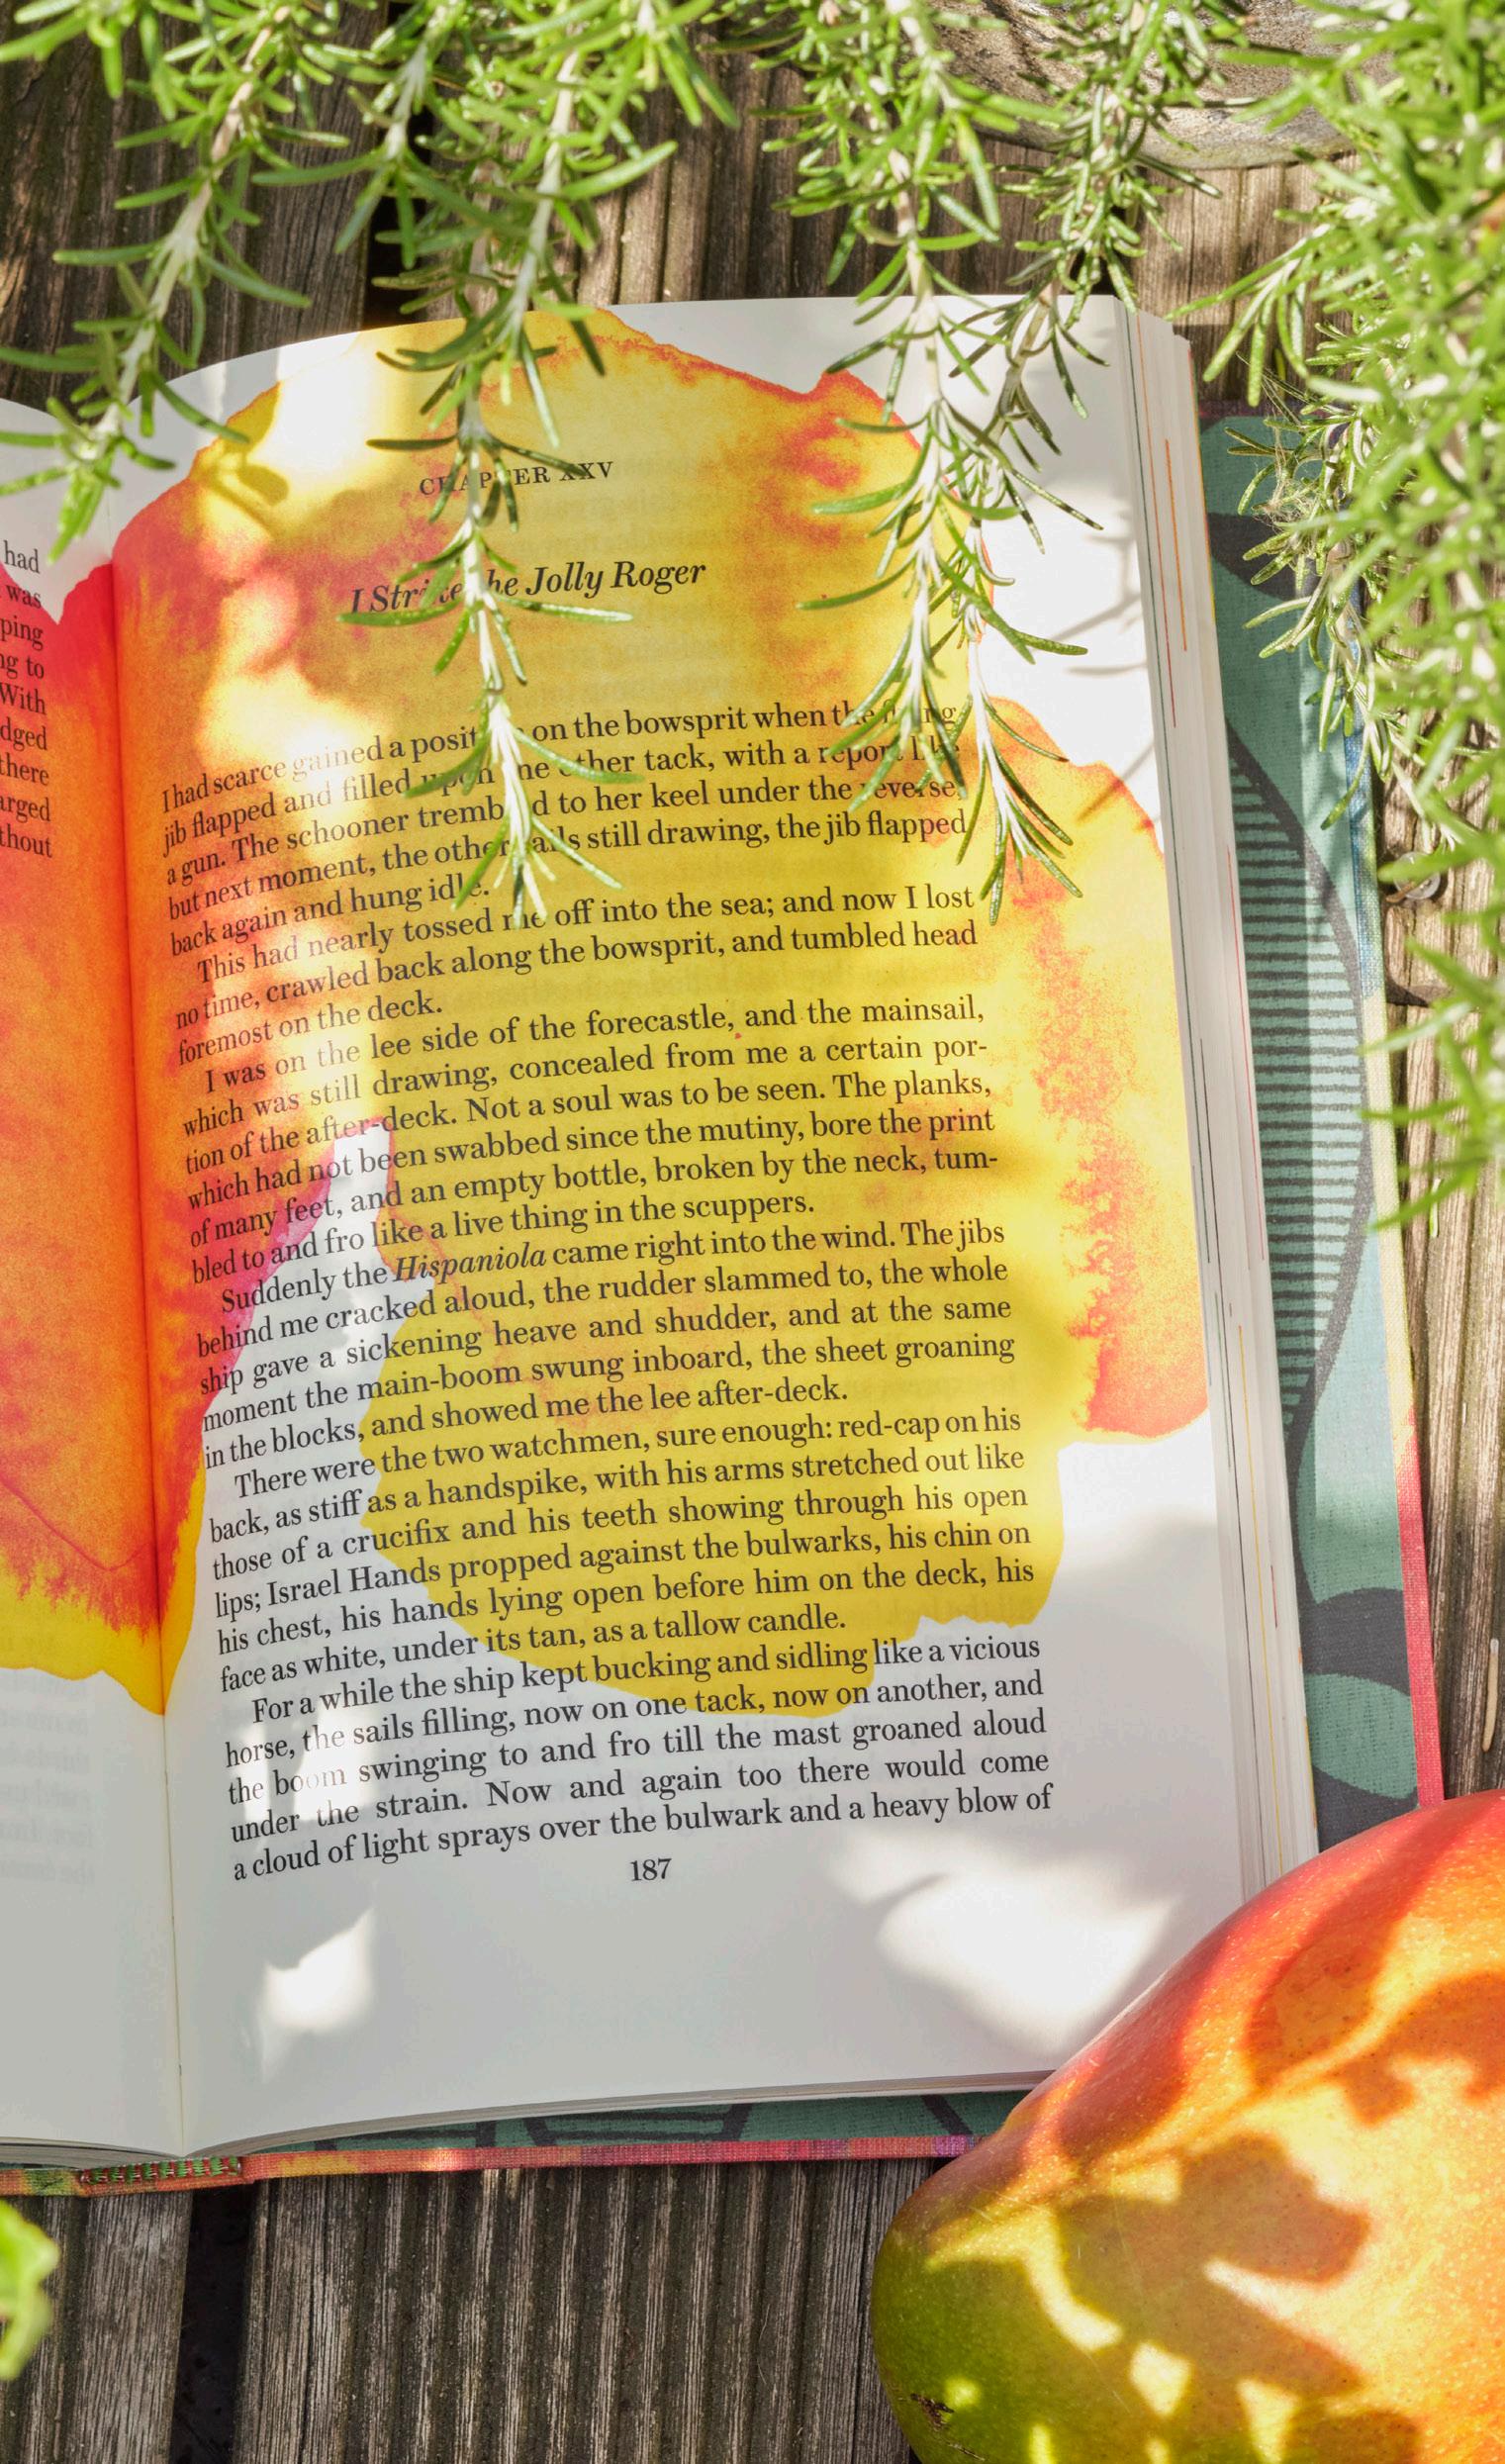 had
was
ping
ng to
With
dged
there
arged
thout
CHAPTER XXV
I Strike the Jolly Roger
I had scarce gained a position on the bowsprit when the flying
jib flapped and filled upon the other tack, with a report like
a gun. The schooner trembled to her keel under the reverse,
but next moment, the other sails still drawing, the jib flapped
back again and hung idle.
This had nearly tossed me off into the sea; and now I lost
no time, crawled back along the bowsprit, and tumbled head
foremost on the deck.
I was on the lee side of the forecastle, and the mainsail,
which was still drawing, concealed from me a certain por-
tion of the after-deck. Not a soul was to be seen. The planks,
which had not been swabbed since the mutiny, bore the print
of many feet, and an empty bottle, broken by the neck, tum-
bled to and fro like a live thing in the scuppers.
Suddenly the Hispaniola came right into the wind. The jibs
behind me cracked aloud, the rudder slammed to, the whole
ship gave a sickening heave and shudder, and at the same
moment the main-boom swung inboard, the sheet groaning
in the blocks, and showed me the lee after-deck.
There were the two watchmen, sure enough: red-cap on his
back, as stiff as a handspike, with his arms stretched out like
those of a crucifix and his teeth showing through his open
lips; Israel Hands propped against the bulwarks, his chin on
his chest, his hands lying open before him on the deck, his
face as white, under its tan, as a tallow candle.
For a while the ship kept bucking and sidling like a vicious
horse, the sails filling, now on one tack, now on another, and
the boom swinging to and fro till the mast groaned aloud
under the strain. Now and again too there would come
a cloud of light sprays over the bulwark and a heavy blow of
187